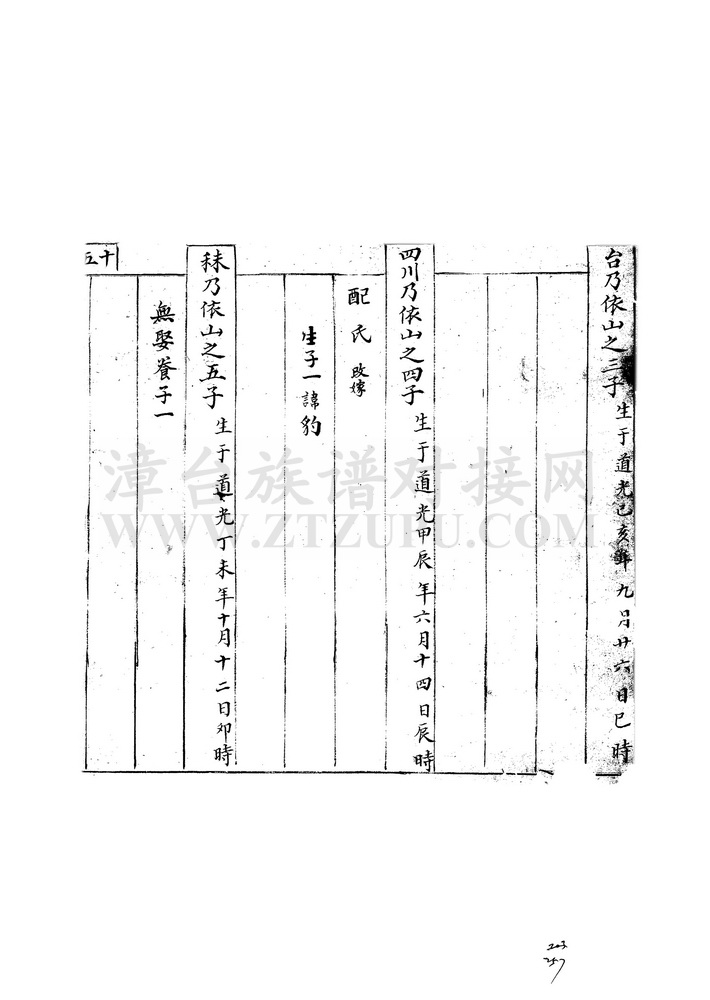 台乃依山之三子 生于道光己亥年九月廿六日巳時
四川乃依山之四子 生于道光甲辰年六月十四日辰時
配氏 改嫁
生子一諱豹
秣乃依山之五子 生于道光丁未年十月十二日卯時
無娶養子一
十五
漳台族谱对接网
WWW.ZTZUPU.COM
203
257